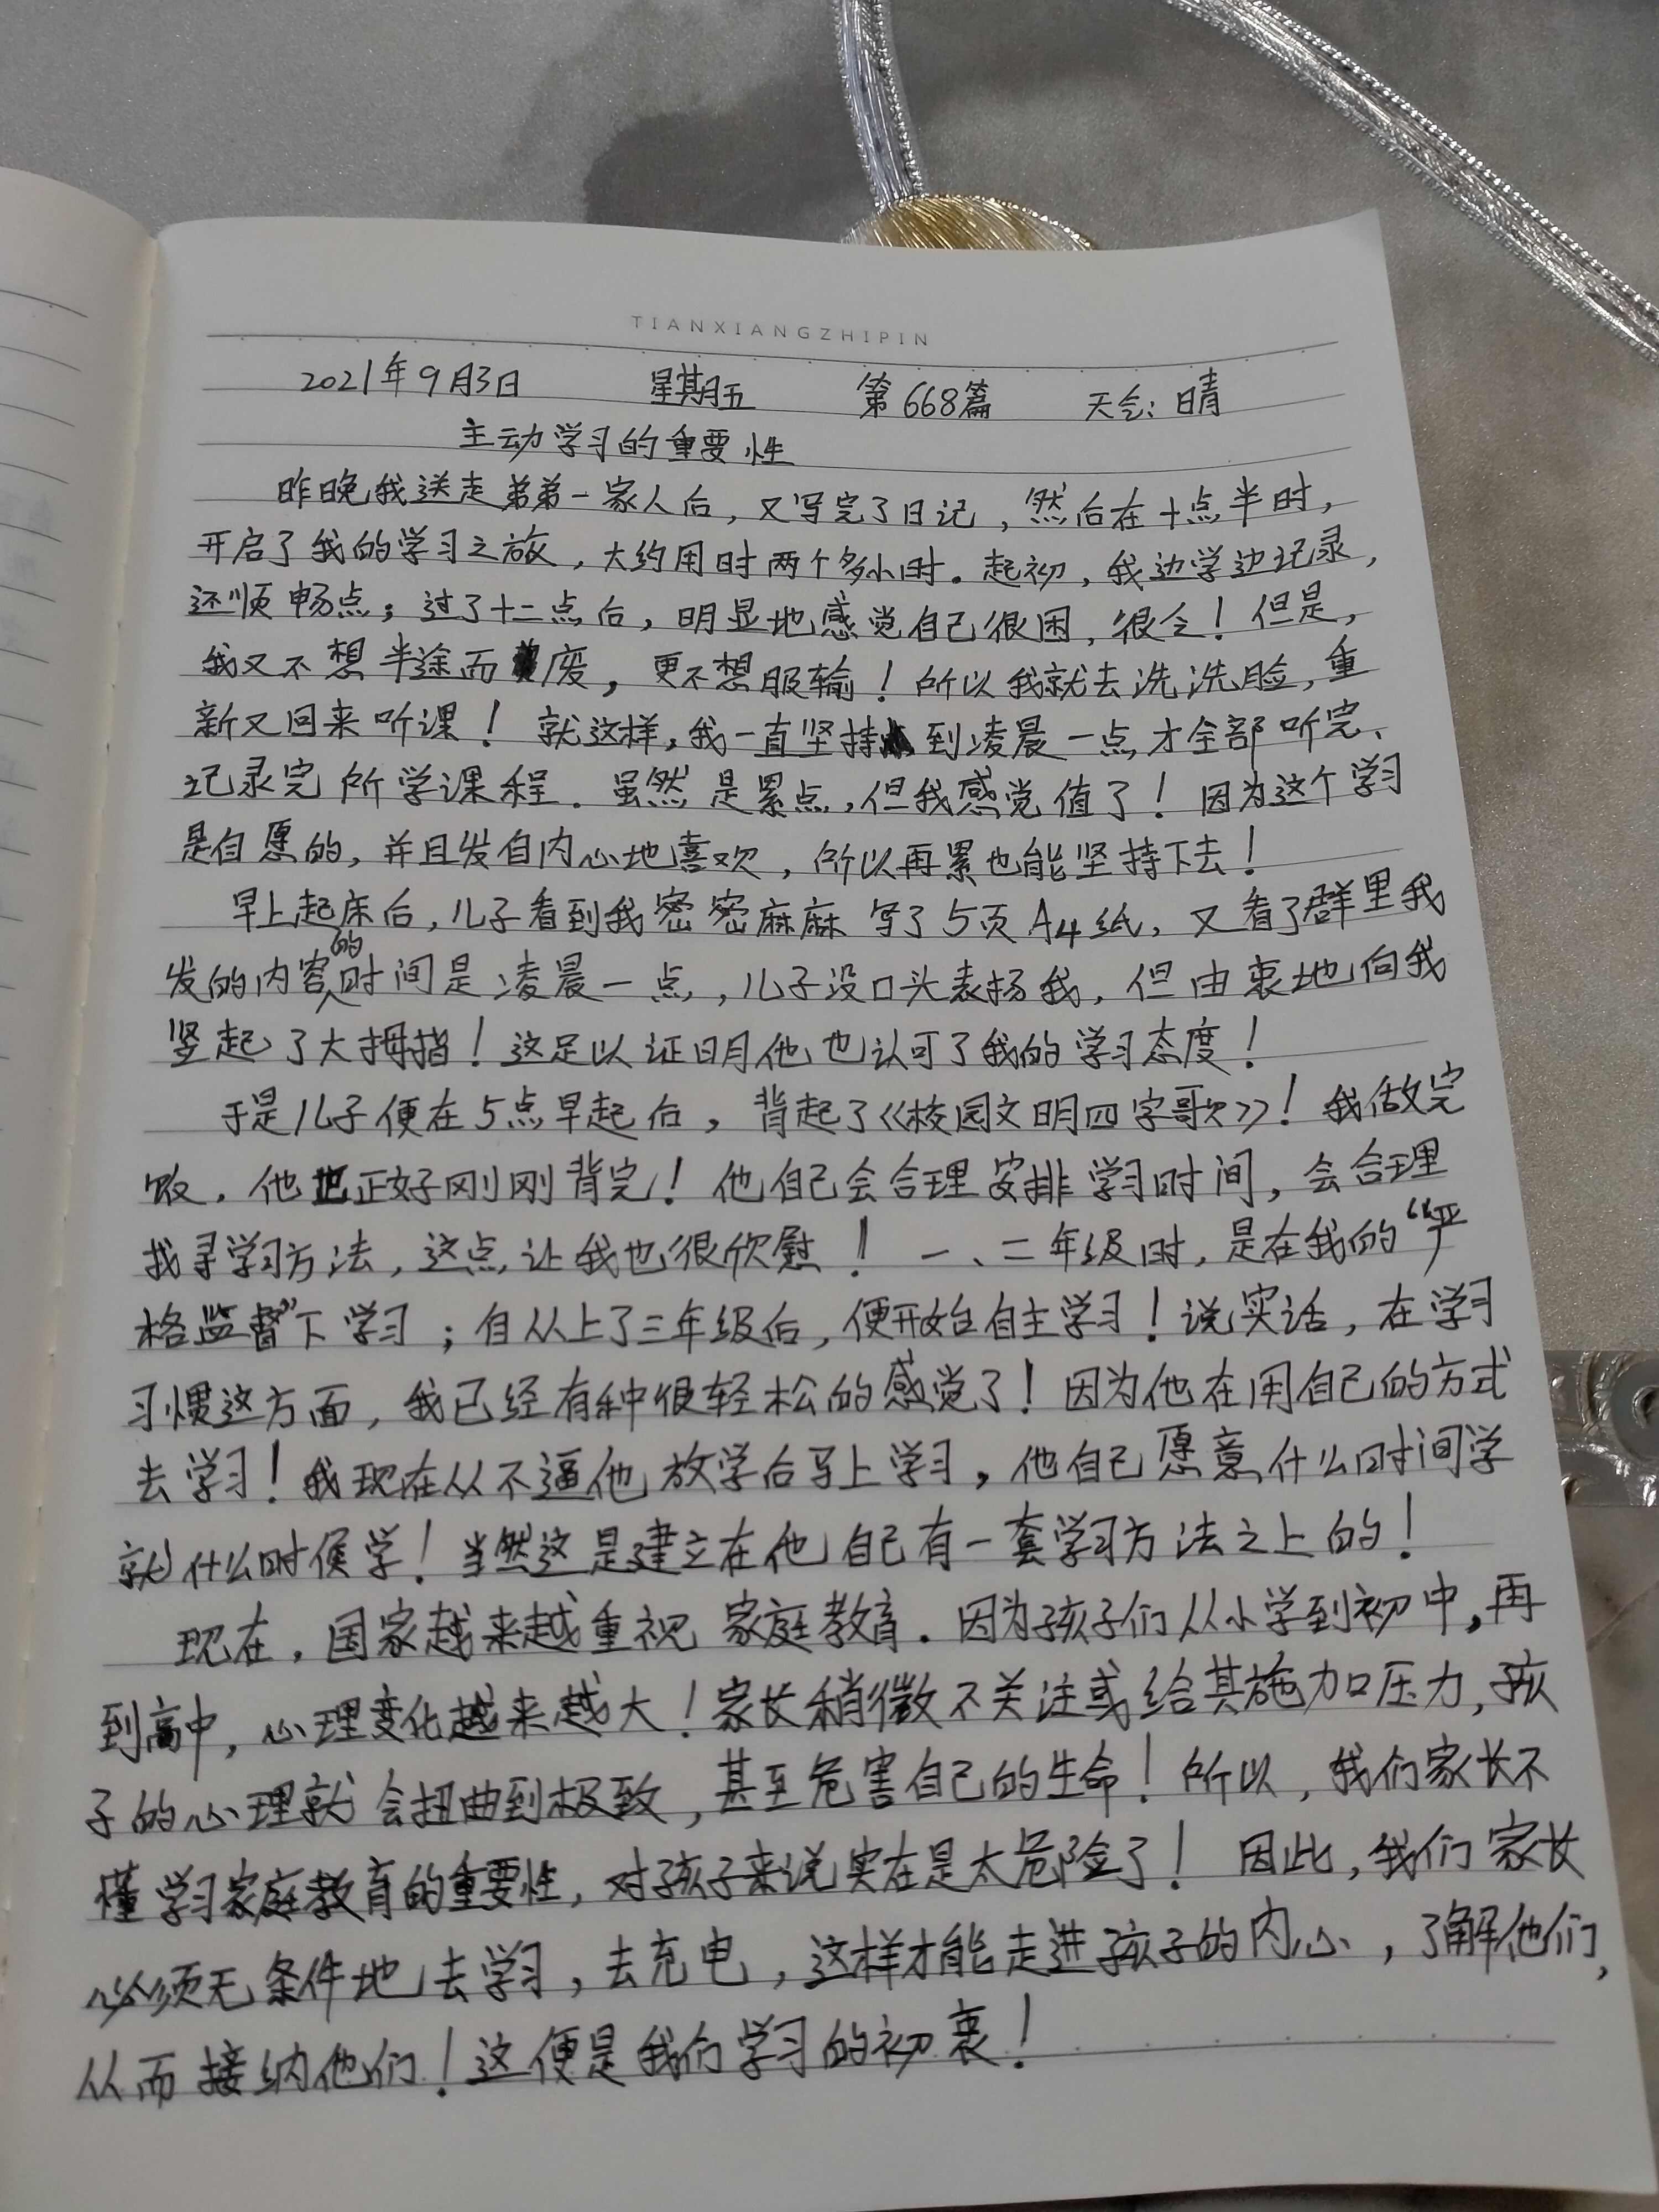 TIANXIANGZHIPIN
2021年9月3日 星期五 第668篇 天气:晴
主动学习的重要性
昨晚我送走弟弟一家人后,又写完了日记,然后在十点半时,
开启了我的学习之旅,大约用时两个多小时。起初,我边学边记录,
还顺畅点;过了十二点后,明显地感觉自己很困,很冷!但是,
我又不想半途而废,更不想服输!所以我就去洗洗脸,重
新又回来听课!就这样,我一直坚持到凌晨一点,才全部听完、
记录完所学课程。虽然是累点,但我感觉值了!因为这个学习
是自愿的,并且发自内心地喜欢,所以再累也能坚持下去!
早上起床后,儿子看到我密密麻麻写了5页A4纸,又看了群里我
发的内容的时间是凌晨一点,儿子没口头表扬我,但由衷地向我
竖起了大拇指!这足以证明他也认可了我的学习态度!
于是儿子便在5点早起后,背起了《校园文明四字歌》!我做完
饭,他也正好刚刚背完!他自己会合理安排学习时间,会合理
找寻学习方法,这点让我也很欣慰!一、二年级时,是在我的“严
格监督”下学习;自从上了三年级后,便开始自主学习!说实话,在学习
习惯这方面,我已经有种很轻松的感觉了!因为他在用自己的方式
去学习!我现在从不逼他放学后马上学习,他自己愿意什么时间学
就什么时候学!当然这是建立在他自己有一套学习方法之上的!
现在,国家越来越重视家庭教育。因为孩子们从小学到初中,再
到高中,心理变化越来越大!家长稍微不关注或给其施加压力,孩
子的心理就会扭曲到极致,甚至危害自己的生命!所以,我们家长不
懂学习家庭教育的重要性,对孩子来说实在是太危险了!因此,我们家长
必须无条件地去学习,去充电,这样才能走进孩子的内心,了解他们,
从而接纳他们!这便是我们学习的初衷!